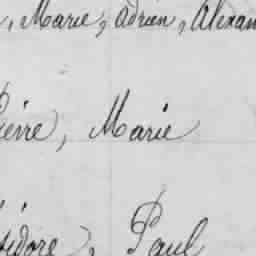 , Marie, Adrien, Alexan
Pierre, Marie
Isidore, Paul